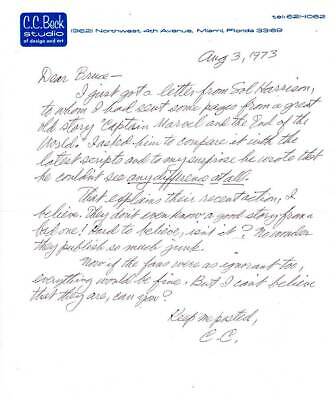 C.C. Beck
Studio
of design and art
tel: 621-1062
19621 Northwest 4th Avenue, Miami, Florida 33169
Aug 3, 1973
Dear Bruce—
I just got a letter from Sol Harrison,
to whom I had sent some pages from a great
old story "Captain Marvel and the End of the
World." I asked him to compare it with the
latest scripts and to my surprise he wrote that
he couldn't see any difference at all.
That explains their recent action, I
believe. They don't even know a good story from a
bad one! Hard to believe, isn't it? No wonder
they publish so much junk.
Now if the fans were as ignorant too,
everything would be fine. But I can't believe
that they are, can you?
Keep me posted,
C.C.